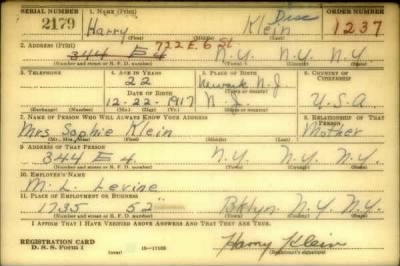 SERIAL NUMBER 1. NAME (Print) ORDER NUMBER
2179 Harry Klein Disc 1237
(First) (Middle) (Last)
2. ADDRESS (Print) 722 E. 6 St.
344 E 4 N.Y. N.Y. N.Y
(Number and street or R. F. D. number) (Town) (County) (State)
3. TELEPHONE 4. AGE IN YEARS 5. PLACE OF BIRTH 6. COUNTRY OF CITIZENSHIP
22 Newark N.J.
DATE OF BIRTH (Town or county)
12-22-1917 N.J. U.S.A
(Exchange) (Number) (Mo.) (Day) (Yr.) (State or country)
7. NAME OF PERSON WHO WILL ALWAYS KNOW YOUR ADDRESS 8. RELATIONSHIP OF THAT PERSON
Mrs Sophie Klein Mother
(Mr., Mrs., Miss) (First) (Middle) (Last)
9. ADDRESS OF THAT PERSON
344 E 4 N.Y. N.Y. N.Y.
(Number and street or R. F. D. number) (Town) (County) (State)
10. EMPLOYER'S NAME
M. L. Levine
11. PLACE OF EMPLOYMENT OR BUSINESS
1735 52 Bklyn N.Y. N.Y.
(Number and street or R. F. D. number) (Town) (County) (State)
I AFFIRM THAT I HAVE VERIFIED ABOVE ANSWERS AND THAT THEY ARE TRUE.
REGISTRATION CARD
D. S. S. Form 1 16-17105 Harry Klein
(Registrant's signature)